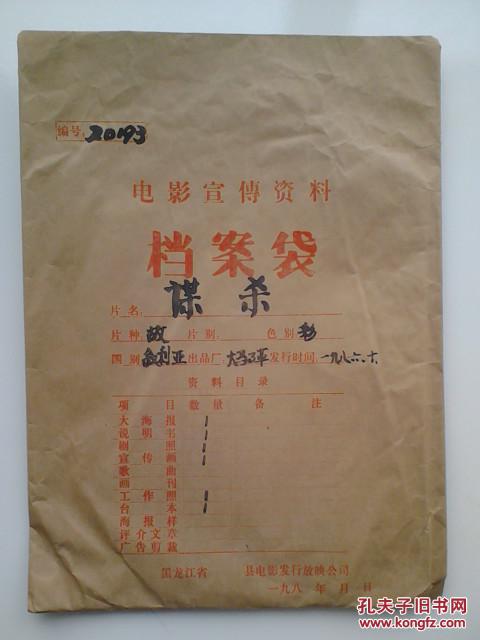 编号 20193
电影宣傳资料
档案袋
片名: 谋 杀
片种 故 片别: 色别 彩
国别 叙利亚 出品厂: 发行时间: 一九八六、十、
资料目录
项目 数量 备注
大海报 1
说明书 1
剧照 1
宣传画 1
歌曲
画刊
工作照 1
台本 1
海报样
评介文章
广告剪裁
黑龙江省 县电影发行放映公司
一九八 年 月 日
孔夫子旧书网
www.kongfz.com